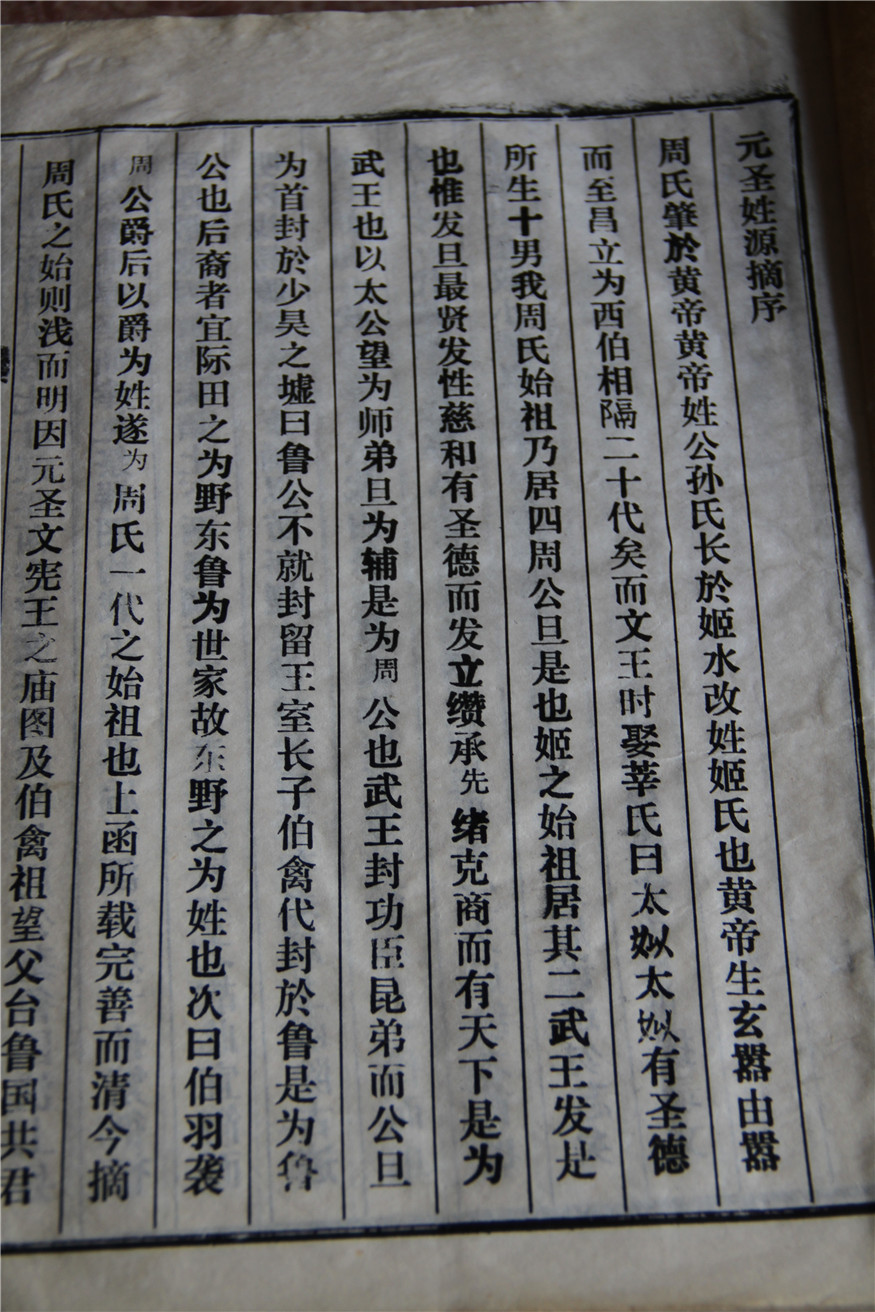 元圣姓源摘序
周氏肇於黄帝黄帝姓公孙氏长於姬水改姓姬氏也黄帝生玄嚣由嚣
而至昌立为西伯相隔二十代矣而文王时娶莘氏曰太姒太姒有圣德
所生十男我周氏始祖乃居四周公旦是也姬之始祖居其二武王发是
也惟发旦最贤发性慈和有圣德而发立缵承先绪克商而有天下是为
武王也以太公望为师弟旦为辅是为周公也武王封功臣昆弟而公旦
为首封於少昊之墟曰鲁公不就封留王室长子伯禽代封於鲁是为鲁
公也后裔者宜际田之为野东鲁为世家故东野之为姓也次曰伯羽袭
周公爵后以爵为姓遂为周氏一代之始祖也上函所载完善而清今摘
周氏之始则浅而明因元圣文宪王之庙图及伯禽祖望父台鲁国共君